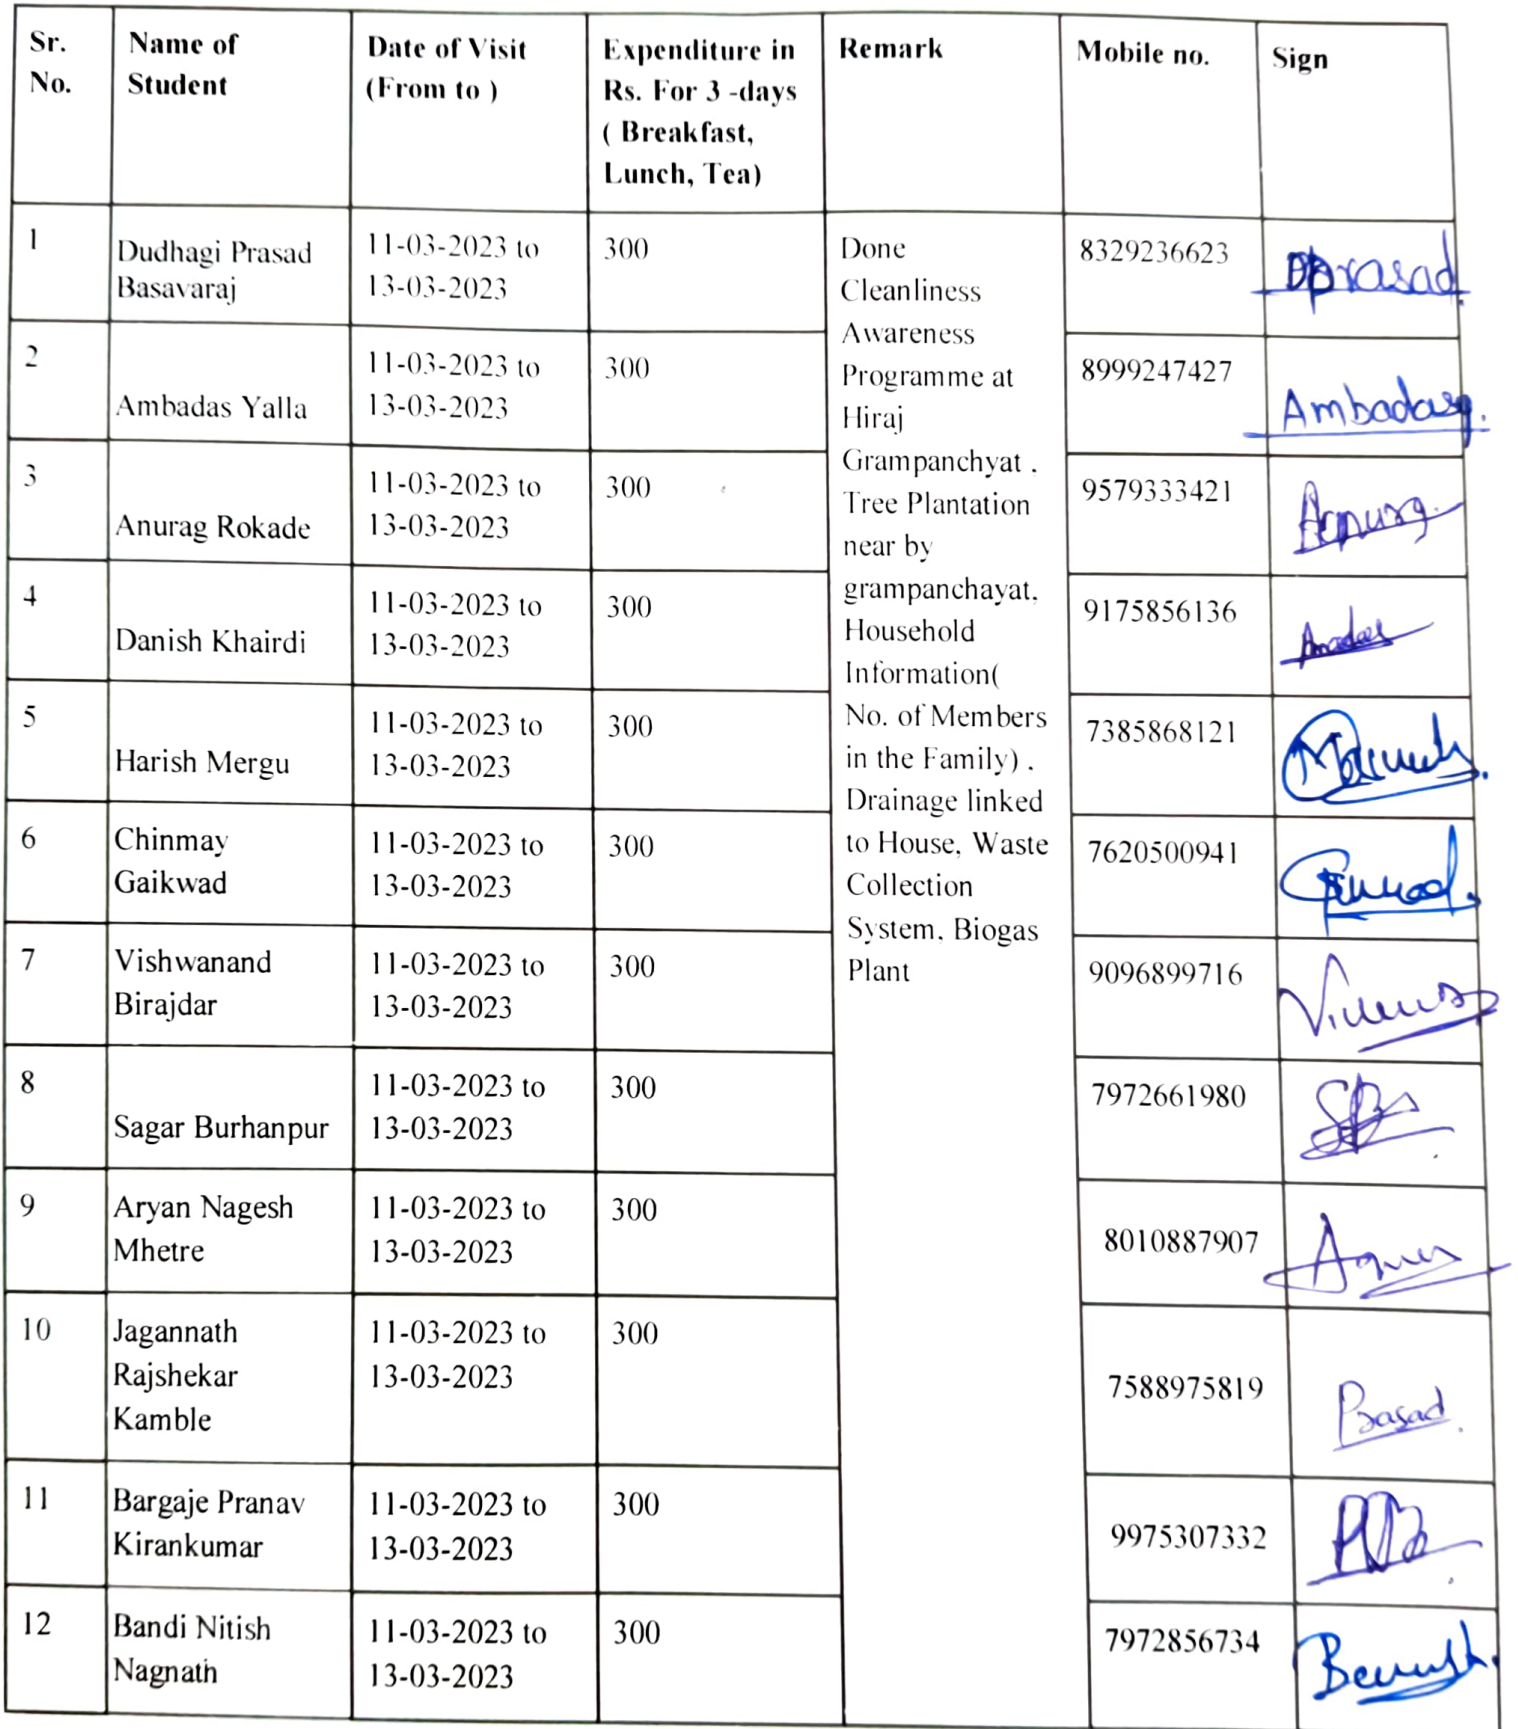 Sr. No.
Name of Student
Date of Visit (From to )
Expenditure in Rs. For 3 -days ( Breakfast, Lunch, Tea)
Remark
Mobile no.
Sign
1
Dudhagi Prasad
Basavaraj
11-03-2023 to
13-03-2023
300
Done
Cleanliness
Awareness
Programme at
Hiraj
Grampanchyat .
Tree Plantation
near by
grampanchayat,
Household
Information(
No. of Members
in the Family) .
Drainage linked
to House, Waste
Collection
System, Biogas
Plant
8329236623
2
Ambadas Yalla
11-03-2023 to
13-03-2023
300
8999247427
3
Anurag Rokade
11-03-2023 to
13-03-2023
300
9579333421
4
Danish Khairdi
11-03-2023 to
13-03-2023
300
9175856136
5
Harish Mergu
11-03-2023 to
13-03-2023
300
7385868121
6
Chinmay
Gaikwad
11-03-2023 to
13-03-2023
300
7620500941
7
Vishwanand
Birajdar
11-03-2023 to
13-03-2023
300
9096899716
8
Sagar Burhanpur
11-03-2023 to
13-03-2023
300
7972661980
9
Aryan Nagesh
Mhetre
11-03-2023 to
13-03-2023
300
8010887907
10
Jagannath
Rajshekar
Kamble
11-03-2023 to
13-03-2023
300
7588975819
11
Bargaje Pranav
Kirankumar
11-03-2023 to
13-03-2023
300
9975307332
12
Bandi Nitish
Nagnath
11-03-2023 to
13-03-2023
300
7972856734